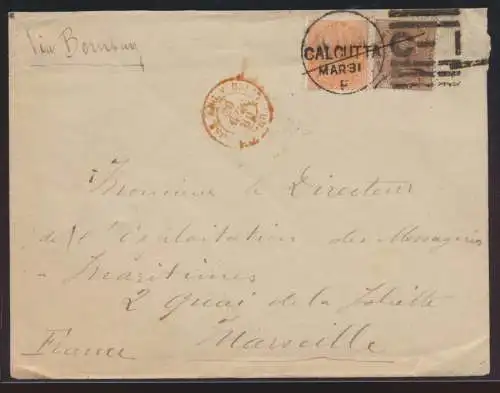 Via Bombay
CALCUTTA
MAR 31
E
Monsieur le Directeur
de l'Exploitation des Messageries
Maritimes
2 Quai de la Joliette
Marseille
France